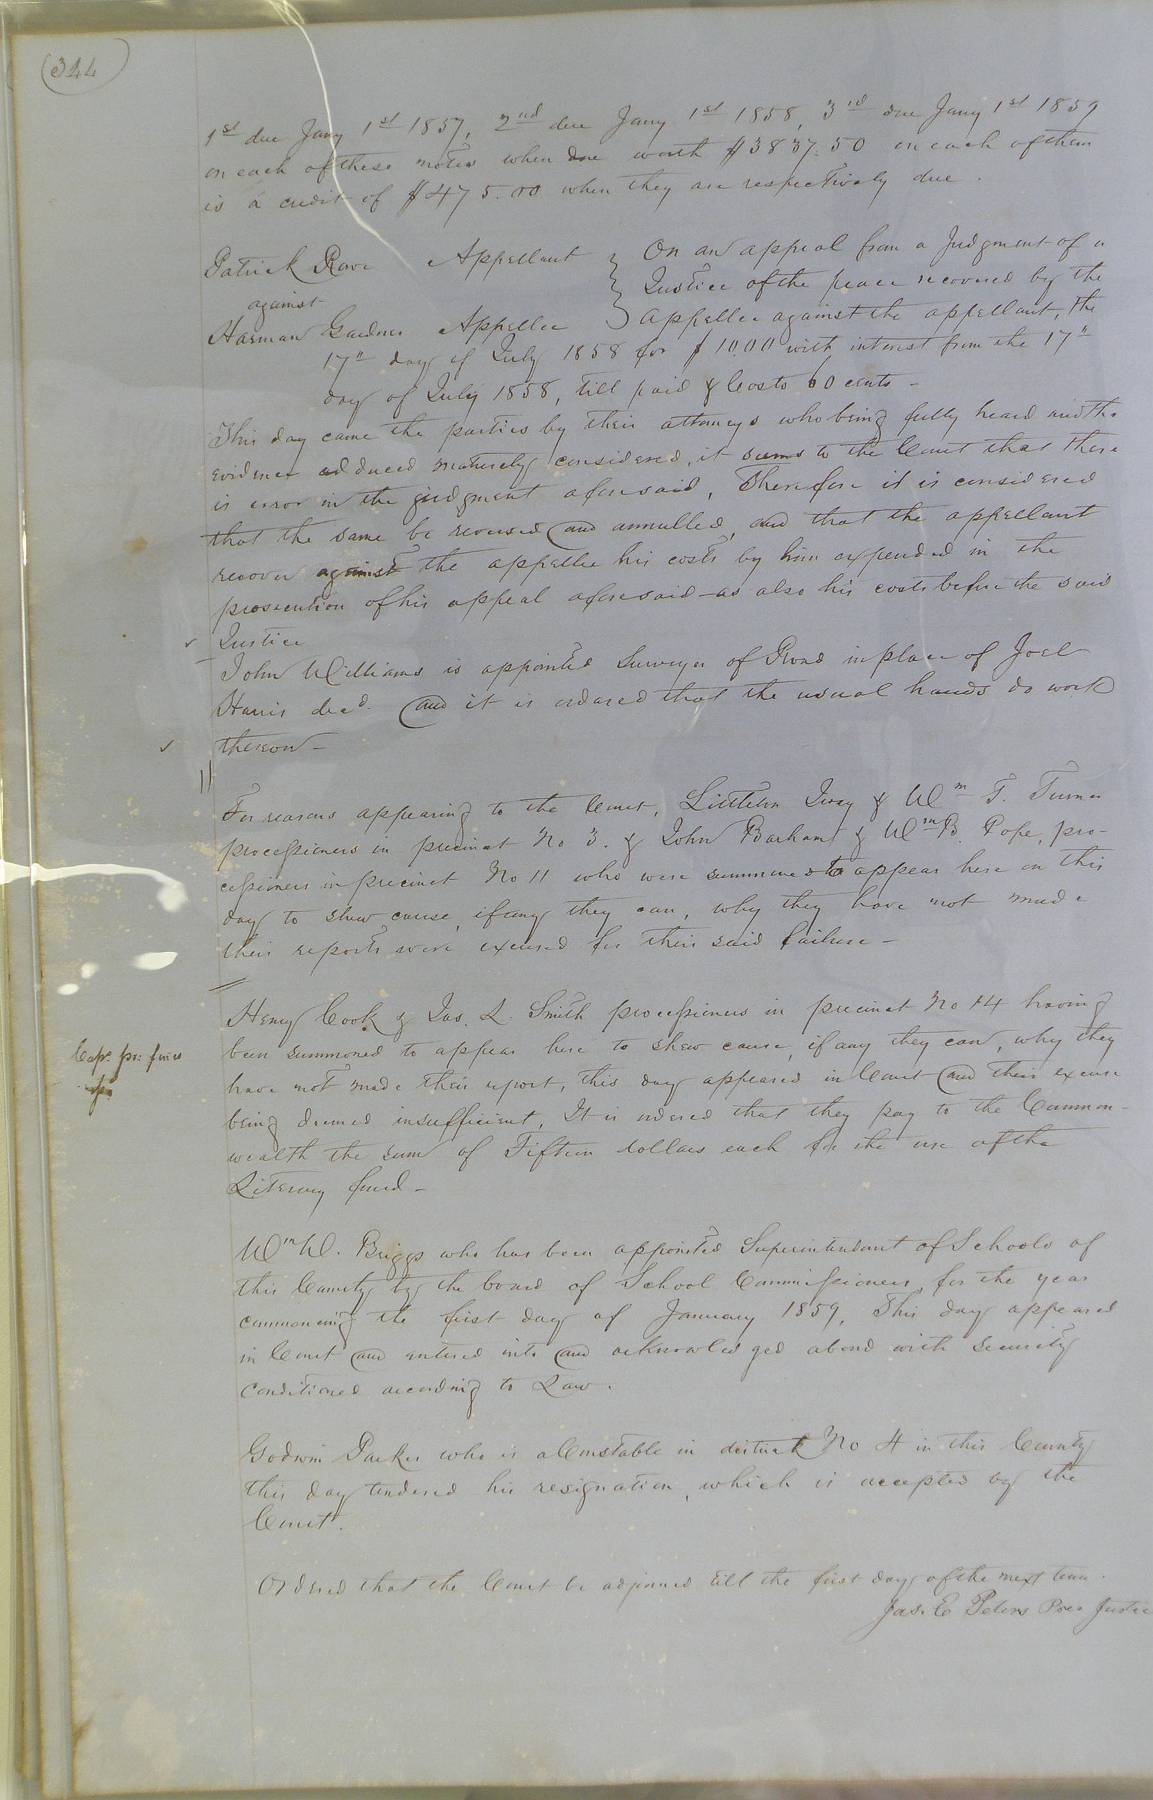 (344)
1st due Jany 1st 1857, 2nd due Jany 1st 1858, 3rd due Jany 1st 1859
on each of these notes when due worth $3837.50 on each of them
is a credit of $475.00 when they are respectively due.
Patrick Rowe Appellant } On an appeal from a Judgment of a
against Justice of the peace recovered by the
Harman Gardner Appellee appellee against the appellant, the
17th day of July 1858 for $10.00 with interest from the 17th
day of July 1858, till paid & Costs 60 cents -
This day came the parties by their attorneys who being fully heard and the
evidence adduced maturely considered, it seems to the Court that there
is error in the judgment aforesaid, Therefore it is considered
that the same be reversed and annulled, and that the appellant
recover against the appellee his costs by him expended in the
prosecution of his appeal aforesaid - as also his costs before the said
Justice
John Williams is appointed Surveyor of Road in place of Joel
Harris decd. and it is ordered that the usual hands do work
thereon -
For reasons appearing to the Court, Littleton Ivey & Wm T. Turner
processioners in precinct No 3. & John Barham & Wm B. Pope, pro-
cessioners in precinct No 11 who were summoned to appear here on this
day to shew cause, if any they can, why they have not made
their reports were excused for their said failure -
Henry Cook & Jas. L. Smith processioners in precinct No 14 having
been summoned to appear here to shew cause, if any they can, why they
Capc. pr: fines
have not made their report, this day appeared in Court and their excuse
being deemed insufficient, It is ordered that they pay to the Common-
wealth the sum of Fifteen dollars each for the use of the
Literary fund -
Wm W. Briggs who has been appointed Superintendant of Schools of
this County by the board of School Commissioners, for the year
commencing the first day of January 1859, This day appeared
in Court and entered into and acknowledged a bond with security
conditioned according to Law.
Godwin Parker who is a Constable in district No 4 in this County
this day tendered his resignation, which is accepted by the
Court.
Ordered that the Court be adjourned till the first day of the next term.
Jas. E Peters Pres Justice